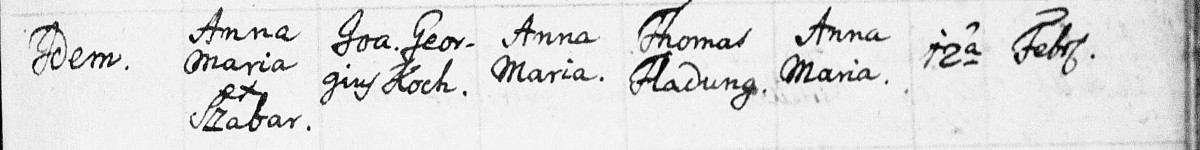 Idem. Anna Joa. Geor- Anna Thomas Anna 12ª Febr.
Maria gius Koch. Maria. Fladung. Maria.
Szabar.